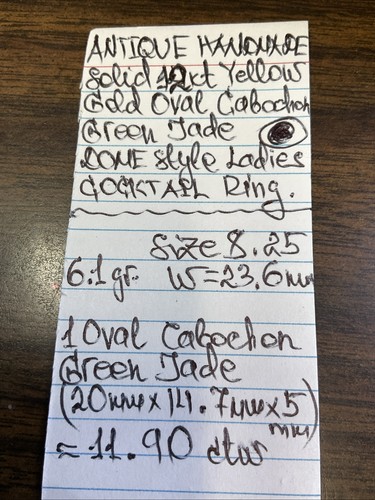 ANTIQUE HANDMADE
Solid 12kt Yellow
Gold Oval Cabochon
Green Jade
DOME Style Ladies
COCKTAIL Ring.
Size 8.25
6.1gr. W=23.6mm
1 Oval Cabochon
Green Jade
(20mm x 14.7mm x 5
mm)
≈ 11.90 ctw